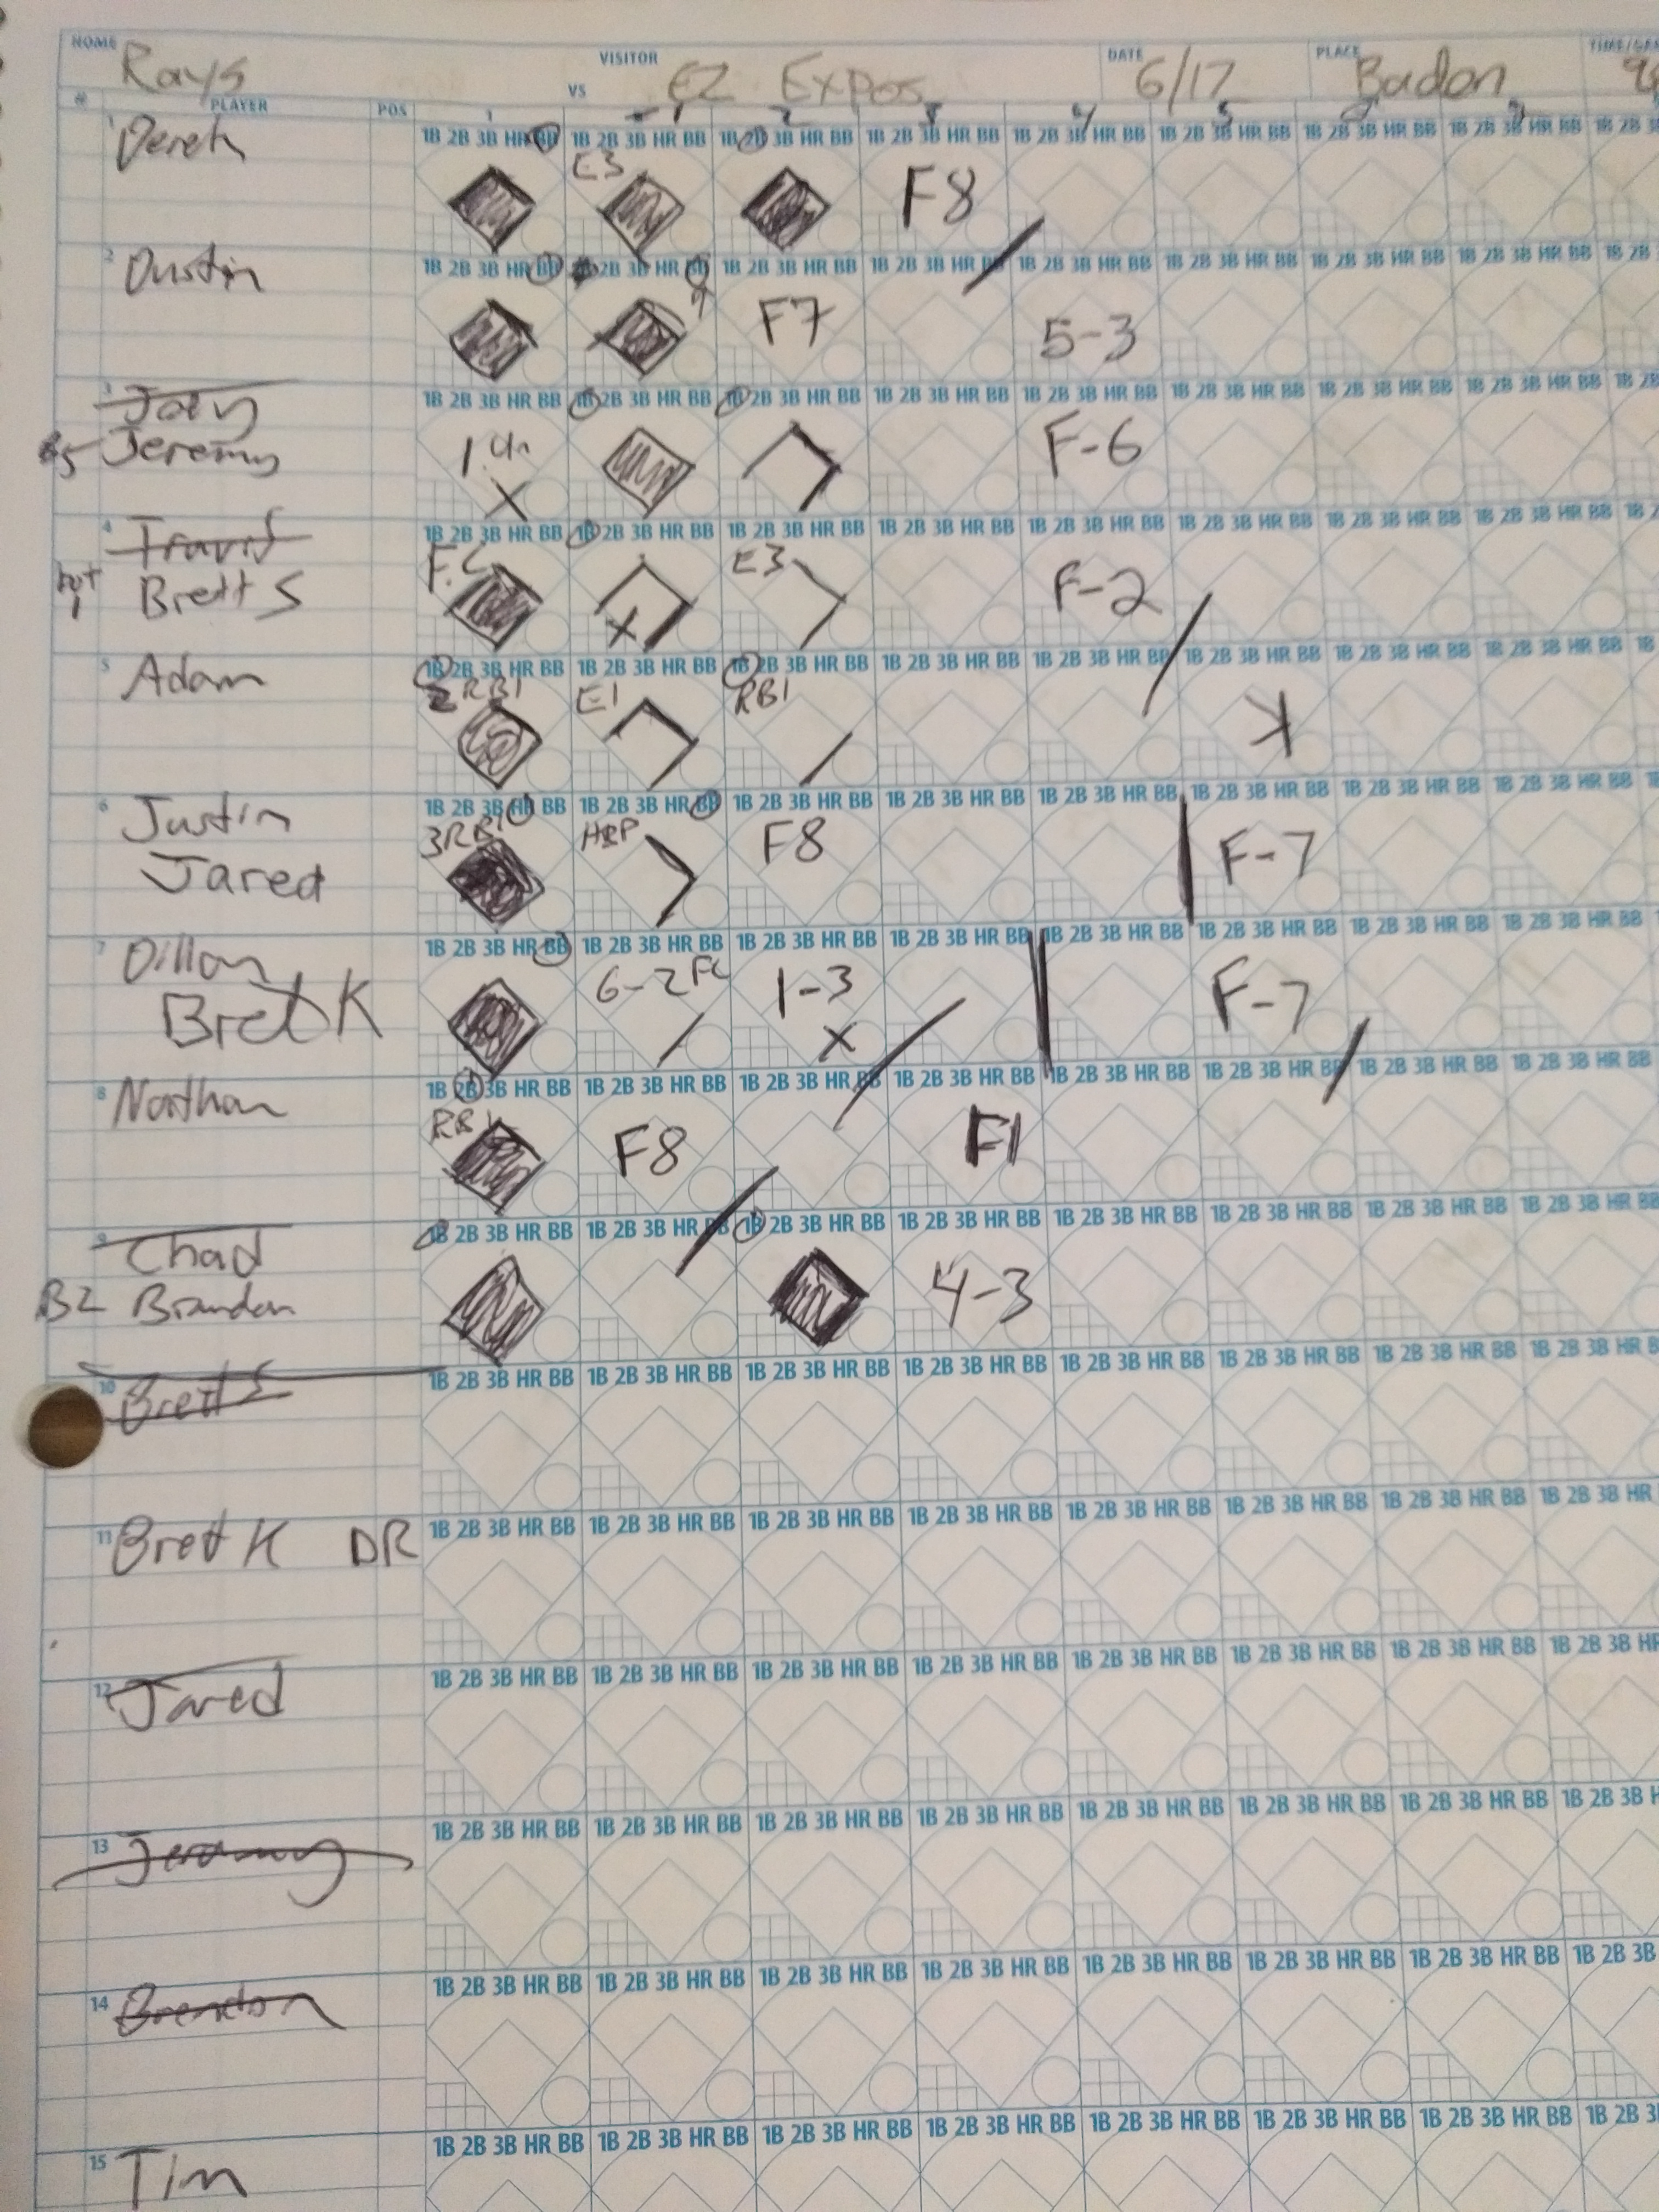 HOME Rays VISITOR VS EZ Expos DATE 6/17 PLACE Baden
# PLAYER POS 1 1 2 3 4 5
1 Derek 1B 2B 3B HR BB 1B 2B 3B HR BB 1B 2B 3B HR BB 1B 2B 3B HR BB 1B 2B 3B HR BB 1B 2B 3B HR BB 1B 2B 3B HR BB 1B 2B 3B HR BB 1B 2B 3B
E3 F8
2 Dustin 1B 2B 3B HR BB 2B 3B HR BB 1B 2B 3B HR BB 1B 2B 3B HR BB 1B 2B 3B HR BB 1B 2B 3B HR BB 1B 2B 3B HR BB 1B 2B 3B HR BB 1B 2B
F7 5-3
3 Joey 1B 2B 3B HR BB 1B 2B 3B HR BB 1B 2B 3B HR BB 1B 2B 3B HR BB 1B 2B 3B HR BB 1B 2B 3B HR BB 1B 2B 3B HR BB 1B 2B 3B HR BB 1B 2B
Jeremy 1 Un X F-6
4 Travis 1B 2B 3B HR BB 1B 2B 3B HR BB 1B 2B 3B HR BB 1B 2B 3B HR BB 1B 2B 3B HR BB 1B 2B 3B HR BB 1B 2B 3B HR BB 1B 2B 3B HR BB
Brett S F.C X E3 F-2
5 Adam 1B 2B 3B HR BB 1B 2B 3B HR BB 1B 2B 3B HR BB 1B 2B 3B HR BB 1B 2B 3B HR BB 1B 2B 3B HR BB 1B 2B 3B HR BB 1B 2B 3B HR BB 1B
2 RBI E1 RBI K
6 Justin 1B 2B 3B HR BB 1B 2B 3B HR BB 1B 2B 3B HR BB 1B 2B 3B HR BB 1B 2B 3B HR BB 1B 2B 3B HR BB 1B 2B 3B HR BB 1B 2B 3B HR BB
Jared 3RBI HBP F8 F-7
7 Dillon 1B 2B 3B HR BB 1B 2B 3B HR BB 1B 2B 3B HR BB 1B 2B 3B HR BB 1B 2B 3B HR BB 1B 2B 3B HR BB 1B 2B 3B HR BB 1B 2B 3B HR BB
Bret K 6-2 FC 1-3 X F-7
8 Nathan 1B 2B 3B HR BB 1B 2B 3B HR BB 1B 2B 3B HR BB 1B 2B 3B HR BB 1B 2B 3B HR BB 1B 2B 3B HR BB 1B 2B 3B HR BB 1B 2B 3B HR BB
RBI F8 F1
9 Chad 1B 2B 3B HR BB 1B 2B 3B HR BB 1B 2B 3B HR BB 1B 2B 3B HR BB 1B 2B 3B HR BB 1B 2B 3B HR BB 1B 2B 3B HR BB 1B 2B 3B HR BB
B2 Brandon 4-3
10 Brett S 1B 2B 3B HR BB 1B 2B 3B HR BB 1B 2B 3B HR BB 1B 2B 3B HR BB 1B 2B 3B HR BB 1B 2B 3B HR BB 1B 2B 3B HR BB 1B 2B 3B HR B
11 Bret K DR 1B 2B 3B HR BB 1B 2B 3B HR BB 1B 2B 3B HR BB 1B 2B 3B HR BB 1B 2B 3B HR BB 1B 2B 3B HR BB 1B 2B 3B HR BB 1B 2B 3B HR
12 Jared 1B 2B 3B HR BB 1B 2B 3B HR BB 1B 2B 3B HR BB 1B 2B 3B HR BB 1B 2B 3B HR BB 1B 2B 3B HR BB 1B 2B 3B HR BB 1B 2B 3B HR
13 Jeremy 1B 2B 3B HR BB 1B 2B 3B HR BB 1B 2B 3B HR BB 1B 2B 3B HR BB 1B 2B 3B HR BB 1B 2B 3B HR BB 1B 2B 3B HR BB 1B 2B 3B H
14 Brendon 1B 2B 3B HR BB 1B 2B 3B HR BB 1B 2B 3B HR BB 1B 2B 3B HR BB 1B 2B 3B HR BB 1B 2B 3B HR BB 1B 2B 3B HR BB 1B 2B 3B
15 Tim 1B 2B 3B HR BB 1B 2B 3B HR BB 1B 2B 3B HR BB 1B 2B 3B HR BB 1B 2B 3B HR BB 1B 2B 3B HR BB 1B 2B 3B HR BB 1B 2B 3